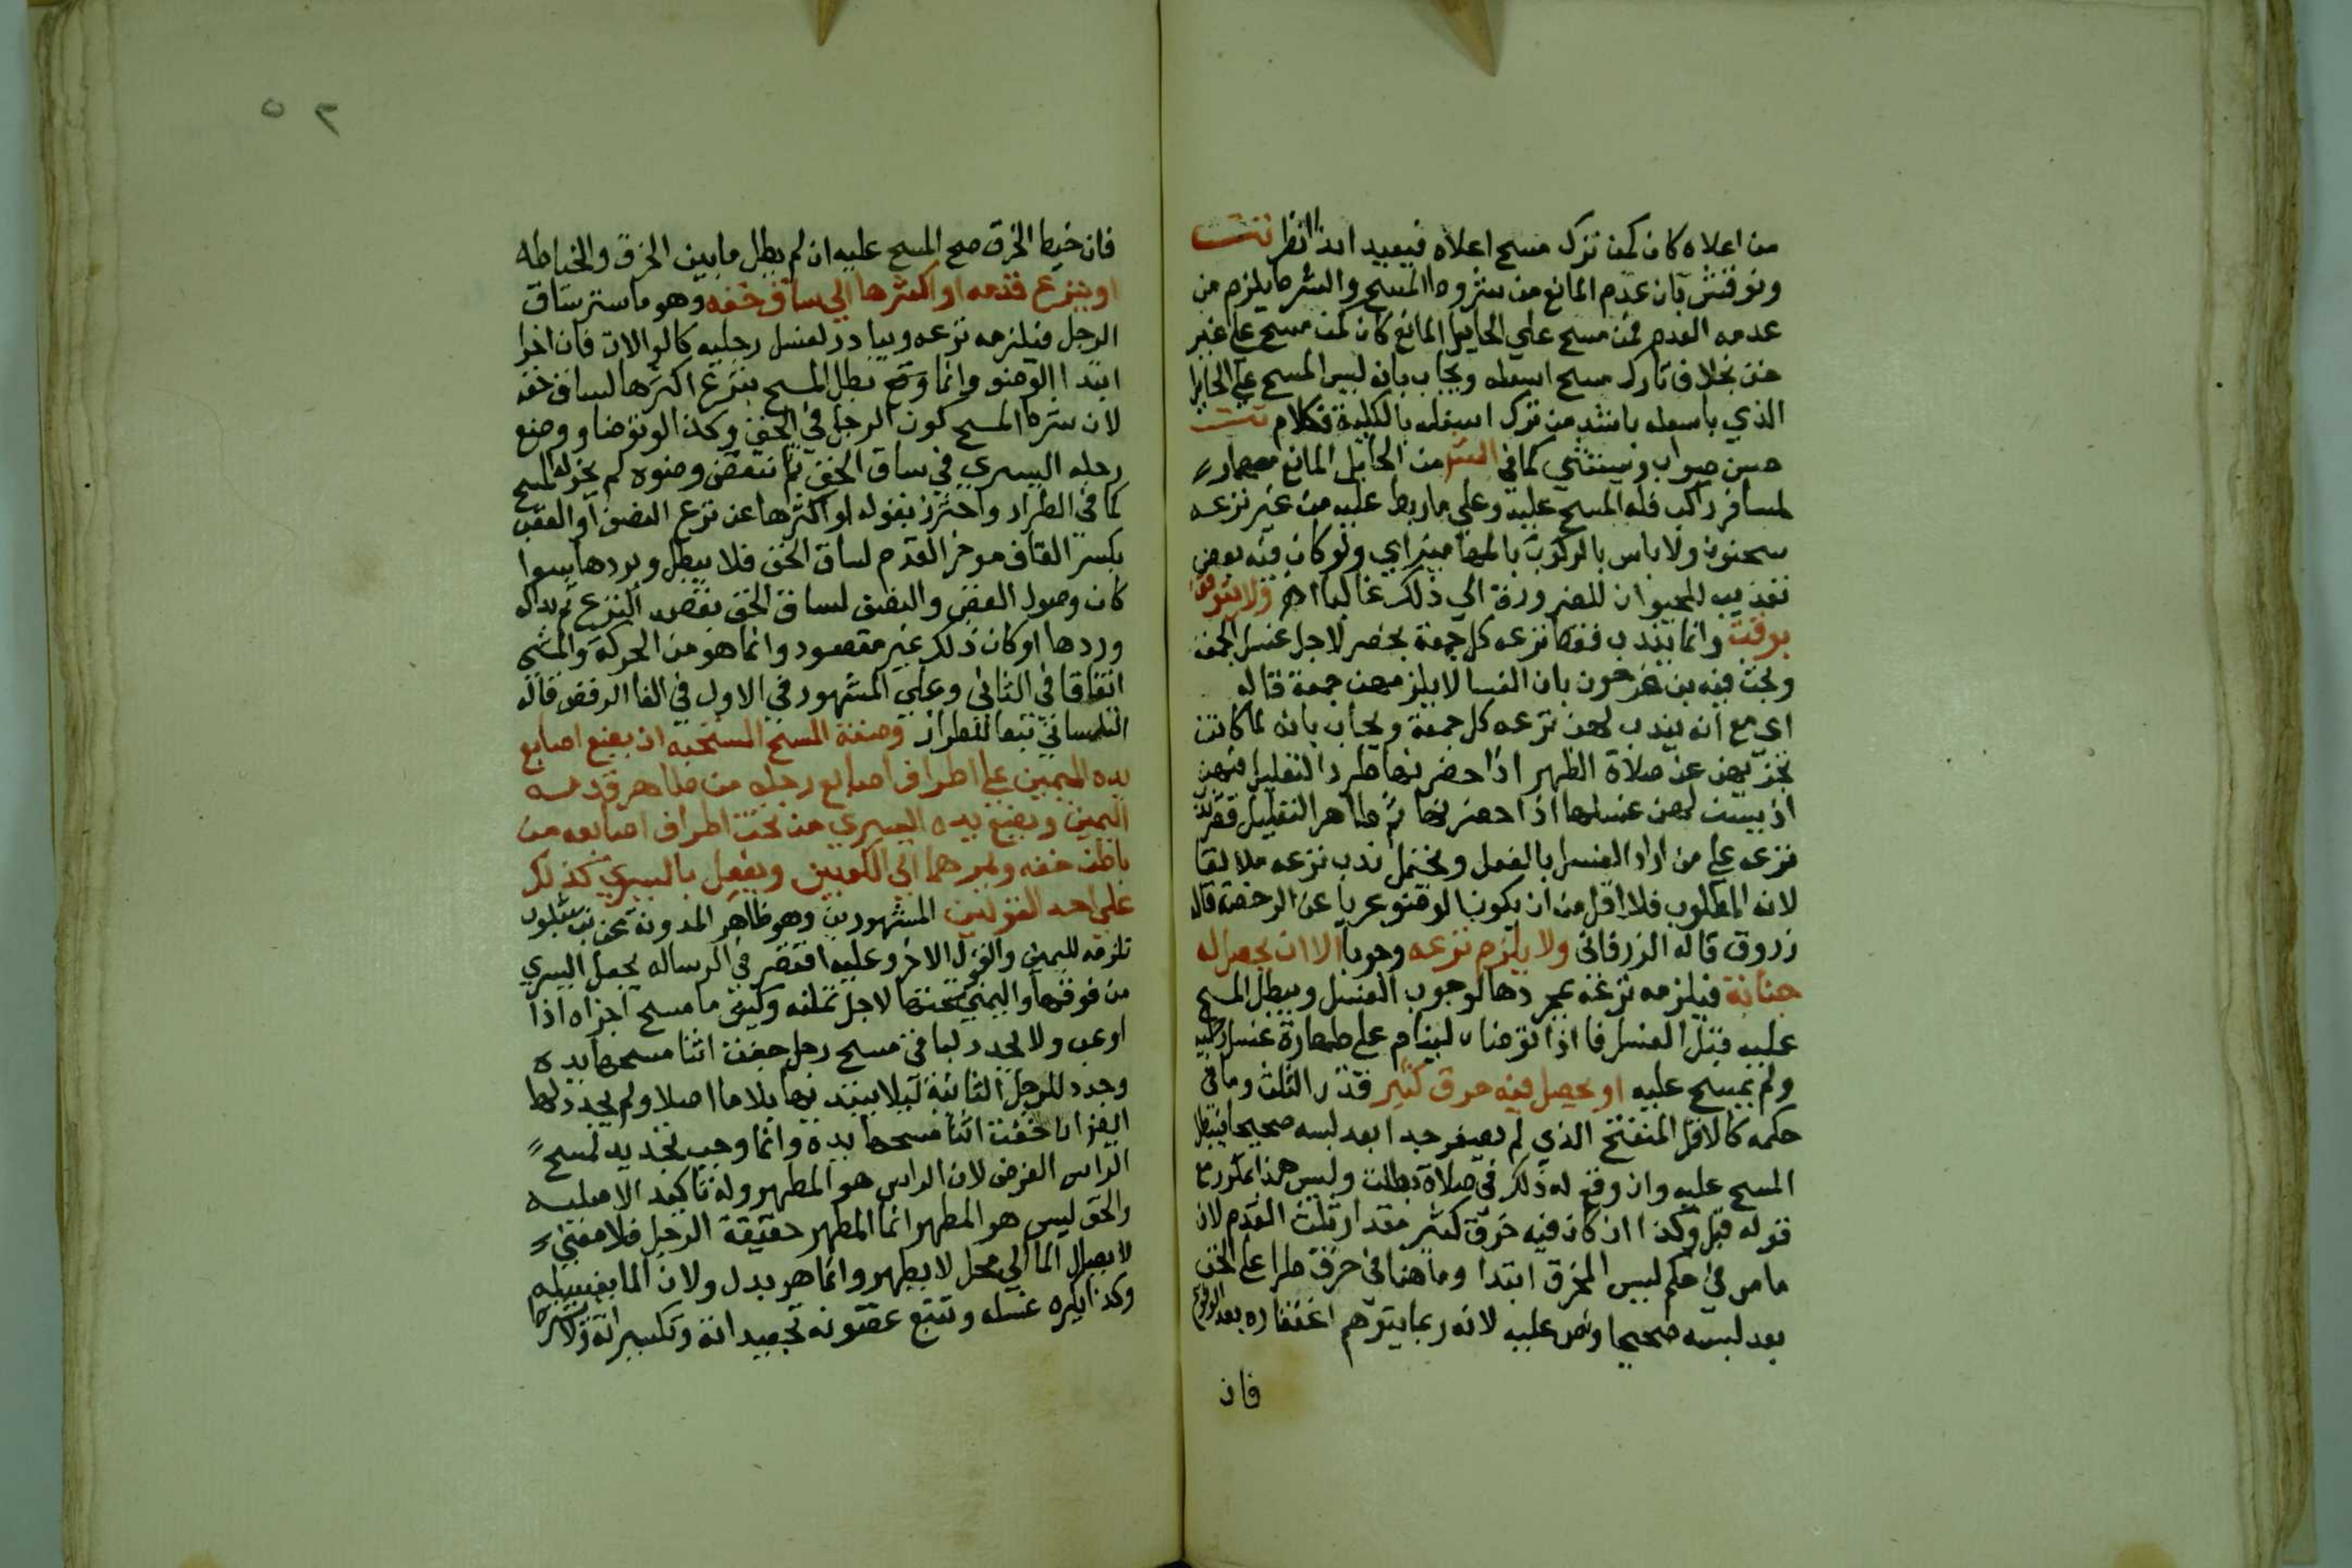 من اعلاه كان كمن ترك مسح اعلاه فيعيد ابدا انظر تت
ونوقش بان عدم المانع من شروط المسح والشرط يلزم من
عدمه العدم فمن مسح علي الحايل المانع كان كمن مسح علي غير
خف بخلاف تارك مسح اسفله ويجاب بانه ليس المسح علي الحايل
الذي باسفله باشد من ترك اسفله بالكلية فكلام تت
حسن صواب ويستثني كما في من الحايل المانع مهماز
لمسافر راكب فله المسح عليه وعلي ما ربط عليه من غير نزعه
سحنون ولا باس بالركوب بالمهاميز اي ولو كان فيه بعض
تعذيب للحيوان للضرورة الي ذلك غالبا اهـ ولا يتوقت
بوقت وانما يندب فقط نزعه كل جمعة بحضر لاجل غسل الجمعة
وبحث فيه بن فرحون بان النسا لا يلزمهن جمعة قاله
اي مع انه يندب لهن نزعه كل جمعة ويجاب بانه لما كانت
تجزيهن عن صلاة الظهر اذا حضرنها طرد التعليل فيهن
اذ يسن لهن غسلها اذا حضرنها ثم ظاهر التعليل قصر ندب
نزعه علي من اراد الغسل بالفعل ويحتمل ندب نزعه مطلقا
لانه المطلوب فلا اقل من ان يكون الوضو عريا عن الرخصة قاله
زروق قاله الزرقاني ولا يلزم نزعه وجوبا الا ان يحصل له
جنابة فيلزمه نزعه بمجردها لوجوب الغسل ويبطل المسح
عليه قبل الغسل فاذا توضا لينام علي طهارة غسل رجليه
ولم يمسح عليه او يحصل فيه خرق كثير قدر الثلث وما في
حكمه كالاقل المنفتح الذي لم يصغر جدا بعد لبسه صحيحا فيبطل
المسح عليه وان وقع له ذلك في صلاة بطلت وليس هذا مكررا مع
قوله قبل وكذا ان كان فيه خرق كثير مقدار ثلث القدم لان
ما مر في حكم لبس المخرق ابتدا وما هنا في خرق طرا علي الخف
بعد لبسه صحيحا ونص عليه لانه ربما يتوهم اغتفاره بعد الوقوع
فان
٥٢
فان خيط الخرق صح المسح عليه ان لم يطل ما بين الخرق والخياطه
او ينزع قدمه او اكثرها الي ساق خفه وهو ما ستر ساق
الرجل فيلزمه نزعه ويبادر لغسل رجليه كالموالاة فان اخر
ابتدا الوضو وانما بطل المسح بنزع اكثرها لساق خفه
لان شرط المسح كون الرجل في الخف وكذا لو توضا ووضع
رجله اليسري في ساق الخف ثم انتقض وضوه لم يجز له المسح
كما في الطراز واحترز بقوله او اكثرها عن نزع النصف او العقب
بكسر القاف موخر القدم لساق الخف فلا يبطل ويردها سوا
كان وصول العقب والنصف لساق الخف بقصد النزع ثم بداله
وردها او كان ذلك غير مقصود وانما هو من الحركة والمشي
اتفاقا في الثاني وعلي المشهور في الاول في الغا الرفض قاله
التلمساني تبعا للطراز وصفة المسح المستحبه ان يضع اصابع
يده اليمين علي اطراف اصابع رجله من ظاهر قدمه
اليمين ويضع يده اليسري من تحت اطراف اصابعه من
باطن خفه ويمرهما الي الكعبين ويفعل باليسري كذلك
علي احد القولين المشهورين وهو ظاهر المدونة عن بن شبلون
تلزمه لليمين والقول الاخر وعليه اقتصر في الرساله يجعل اليسري
من فوقها واليمني تحتها لاجل تمكنه وكيف ما مسح اجزاه اذا
اوعب ولا يجدد لباقي مسح رجل جفت اثنا مسحها يده
وجدد للرجل الثانية ليلا يبتديها بلا ما اصلا ولم يجدد لها
ايضا ان جفت اثنا مسحها يده وانما وجب تجديد لمسح
الراس الفرض لان الراس هو المطهر وله تاكيد الاصليه
والخف ليس هو المطهر انما المطهر حقيقة الرجل فلا معني
لايصال الما الي محل لا يطهر وانما هو بدل ولان الما يفسده
وكذا يكره غسله وتتبع غضونه تجعيداته وتكسيراته ولا